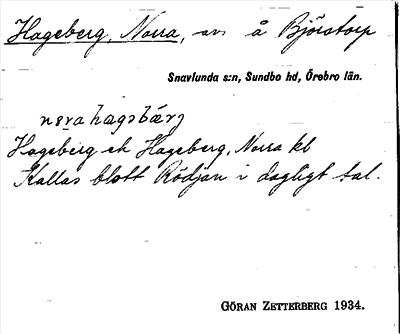 Hageberg, Norra, avs å Björstorp
Snavlunda s:n, Sundbo hd, Örebro län.
nɷra hagəbærj
Hageberg ek Hageberg, Norra kl
Kallas blott Rödjan i dagligt tal.
GÖRAN ZETTERBERG 1934.